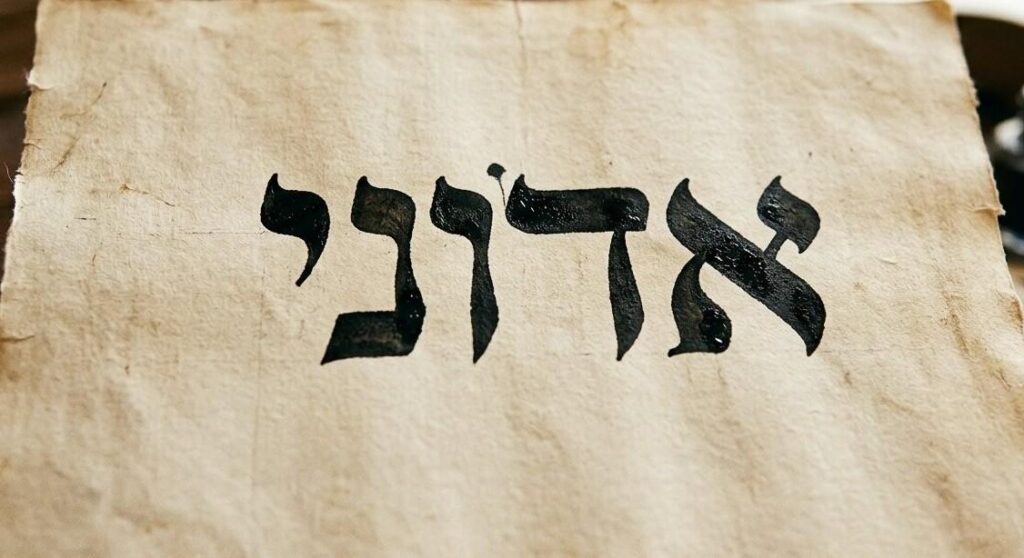 אדֹוני